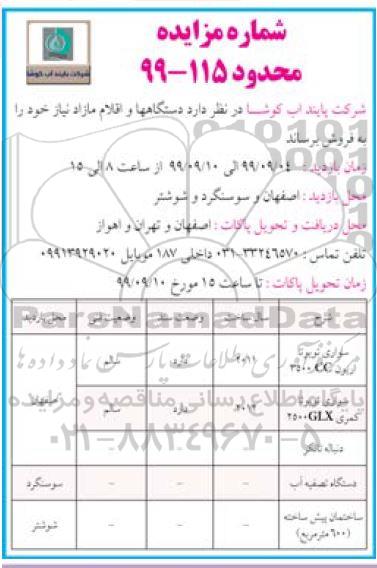 شماره مزایده
محدود ۱۱۵-۹۹
شرکت پایند آب کوشا
شرکت پایند آب کوشا در نظر دارد دستگاهها و اقلام مازاد نیاز خود را
به فروش برساند
زمان بازدید : ۹۹/۰۹/۰۴ الی ۹۹/۰۹/۱۰ از ساعت ۸ الی ۱۵
محل بازدید : اصفهان و سوسنگرد و شوشتر
محل دریافت و تحویل پاکات : اصفهان و تهران و اهواز
تلفن تماس : ۳۳۲۴۶۵۷۰-۰۳۱ داخلی ۱۸۷ موبایل ۰۹۹۱۳۹۲۹۰۲۰
زمان تحویل پاکات : تا ساعت ۱۵ مورخ ۹۹/۰۹/۱۰
شرح سال ساخت وضعیت سند وضعیت فنی محل بازدید
سواری تویوتا
اریون ۳۵۰۰CC ۲۰۱۱ دارد سالم
سواری تویوتا
کمری ۲۵۰۰GLX ۲۰۱۲ دارد سالم
اصفهان
دنباله تانکر - - -
دستگاه تصفیه آب - - - سوسنگرد
ساختمان پیش ساخته
(۶۰۰ مترمربع) - - - شوشتر
ParsNamadData
مرکز فرآوری اطلاعات پارس نماد داده ها
پایگاه اطلاع رسانی مناقصه و مزایده
۰۲۱-۸۸۳۴۹۶۷۰-۵